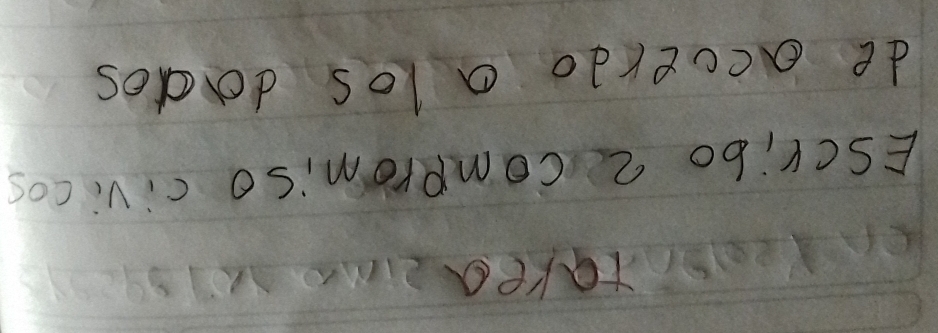 tarea
Escribo 2 compromiso civicos
de acuerdo a los dados